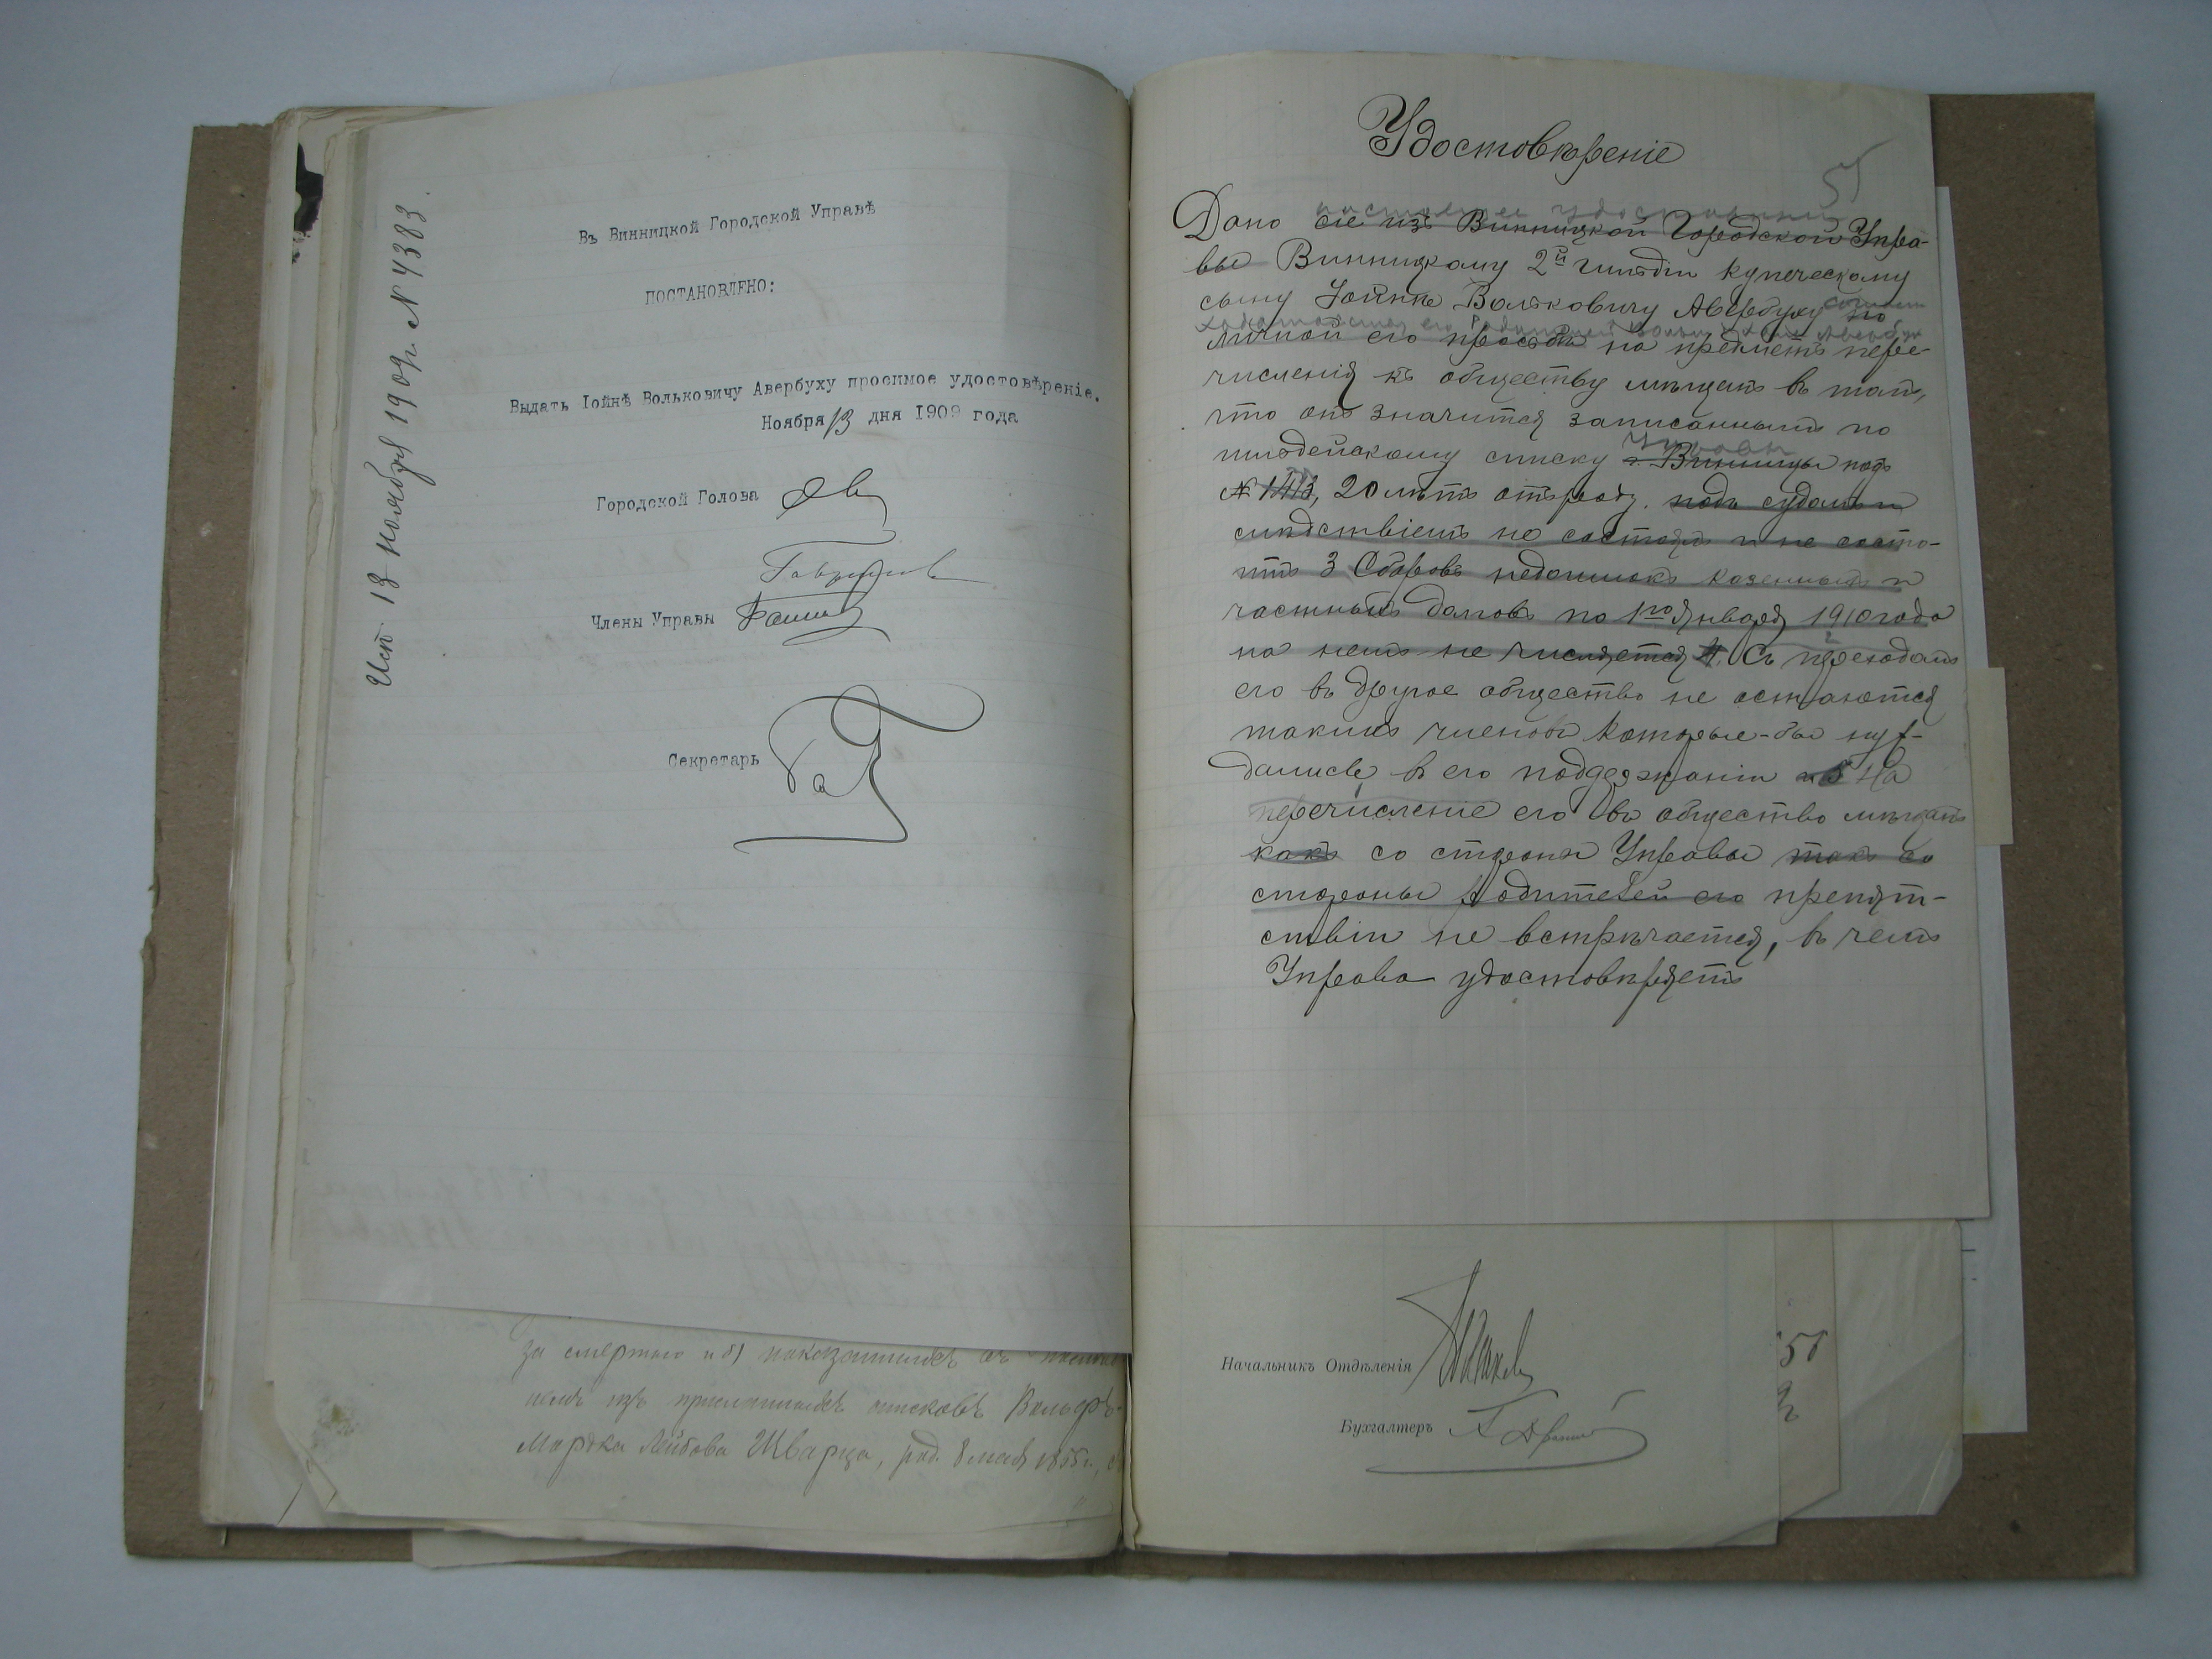 Исп 13 ноября 1909г. N 4383.
Въ Винницкой Городской Управѣ
ПОСТАНОВЛЕНО:
Выдать Іойнѣ Вольковичу Авербуху просимое удостовѣреніе.
Ноября 13 дня 1909 года
Городской Голова
Члены Управы
Секретарь
немъ изъ списковъ Вольфъ-
Мордка Лейбова Шварца, род. 8 мая 1855г.,
Удостовѣреніе
55
настоящее
Дано сіе изъ Винницкой Городской Упра-
вы Винницкому 2й гильдіи купеческому
сыну Іойнѣ Вольковичу Авербуху по
ходатайства его родителей Авербух
личной его просьбѣ на предметъ пере-
численія къ обществу мѣщанъ въ томъ,
что онъ значится записаннымъ по
гильдейскому списку г. Винницы подъ
№ 20 лѣтъ отъ роду. подъ судомъ и
слѣдствіемъ не состоялъ и не состо-
итъ 3 Сборовъ недоимокъ казенныхъ и
частныхъ долговъ по 1го Января 1910 года
на немъ не числится 4. Съ переходомъ
его въ другое общество не остаются
такихъ членовъ которые-бы нуж-
дались въ его поддержаніи 5 На
перечисленіе его въ общество мѣщанъ
какъ со стороны Управы такъ со
стороны Родителей его препят-
ствіи не встрѣчается, въ чемъ
Управа удостовѣряетъ
Начальникъ Отдѣленія
Бухгалтеръ